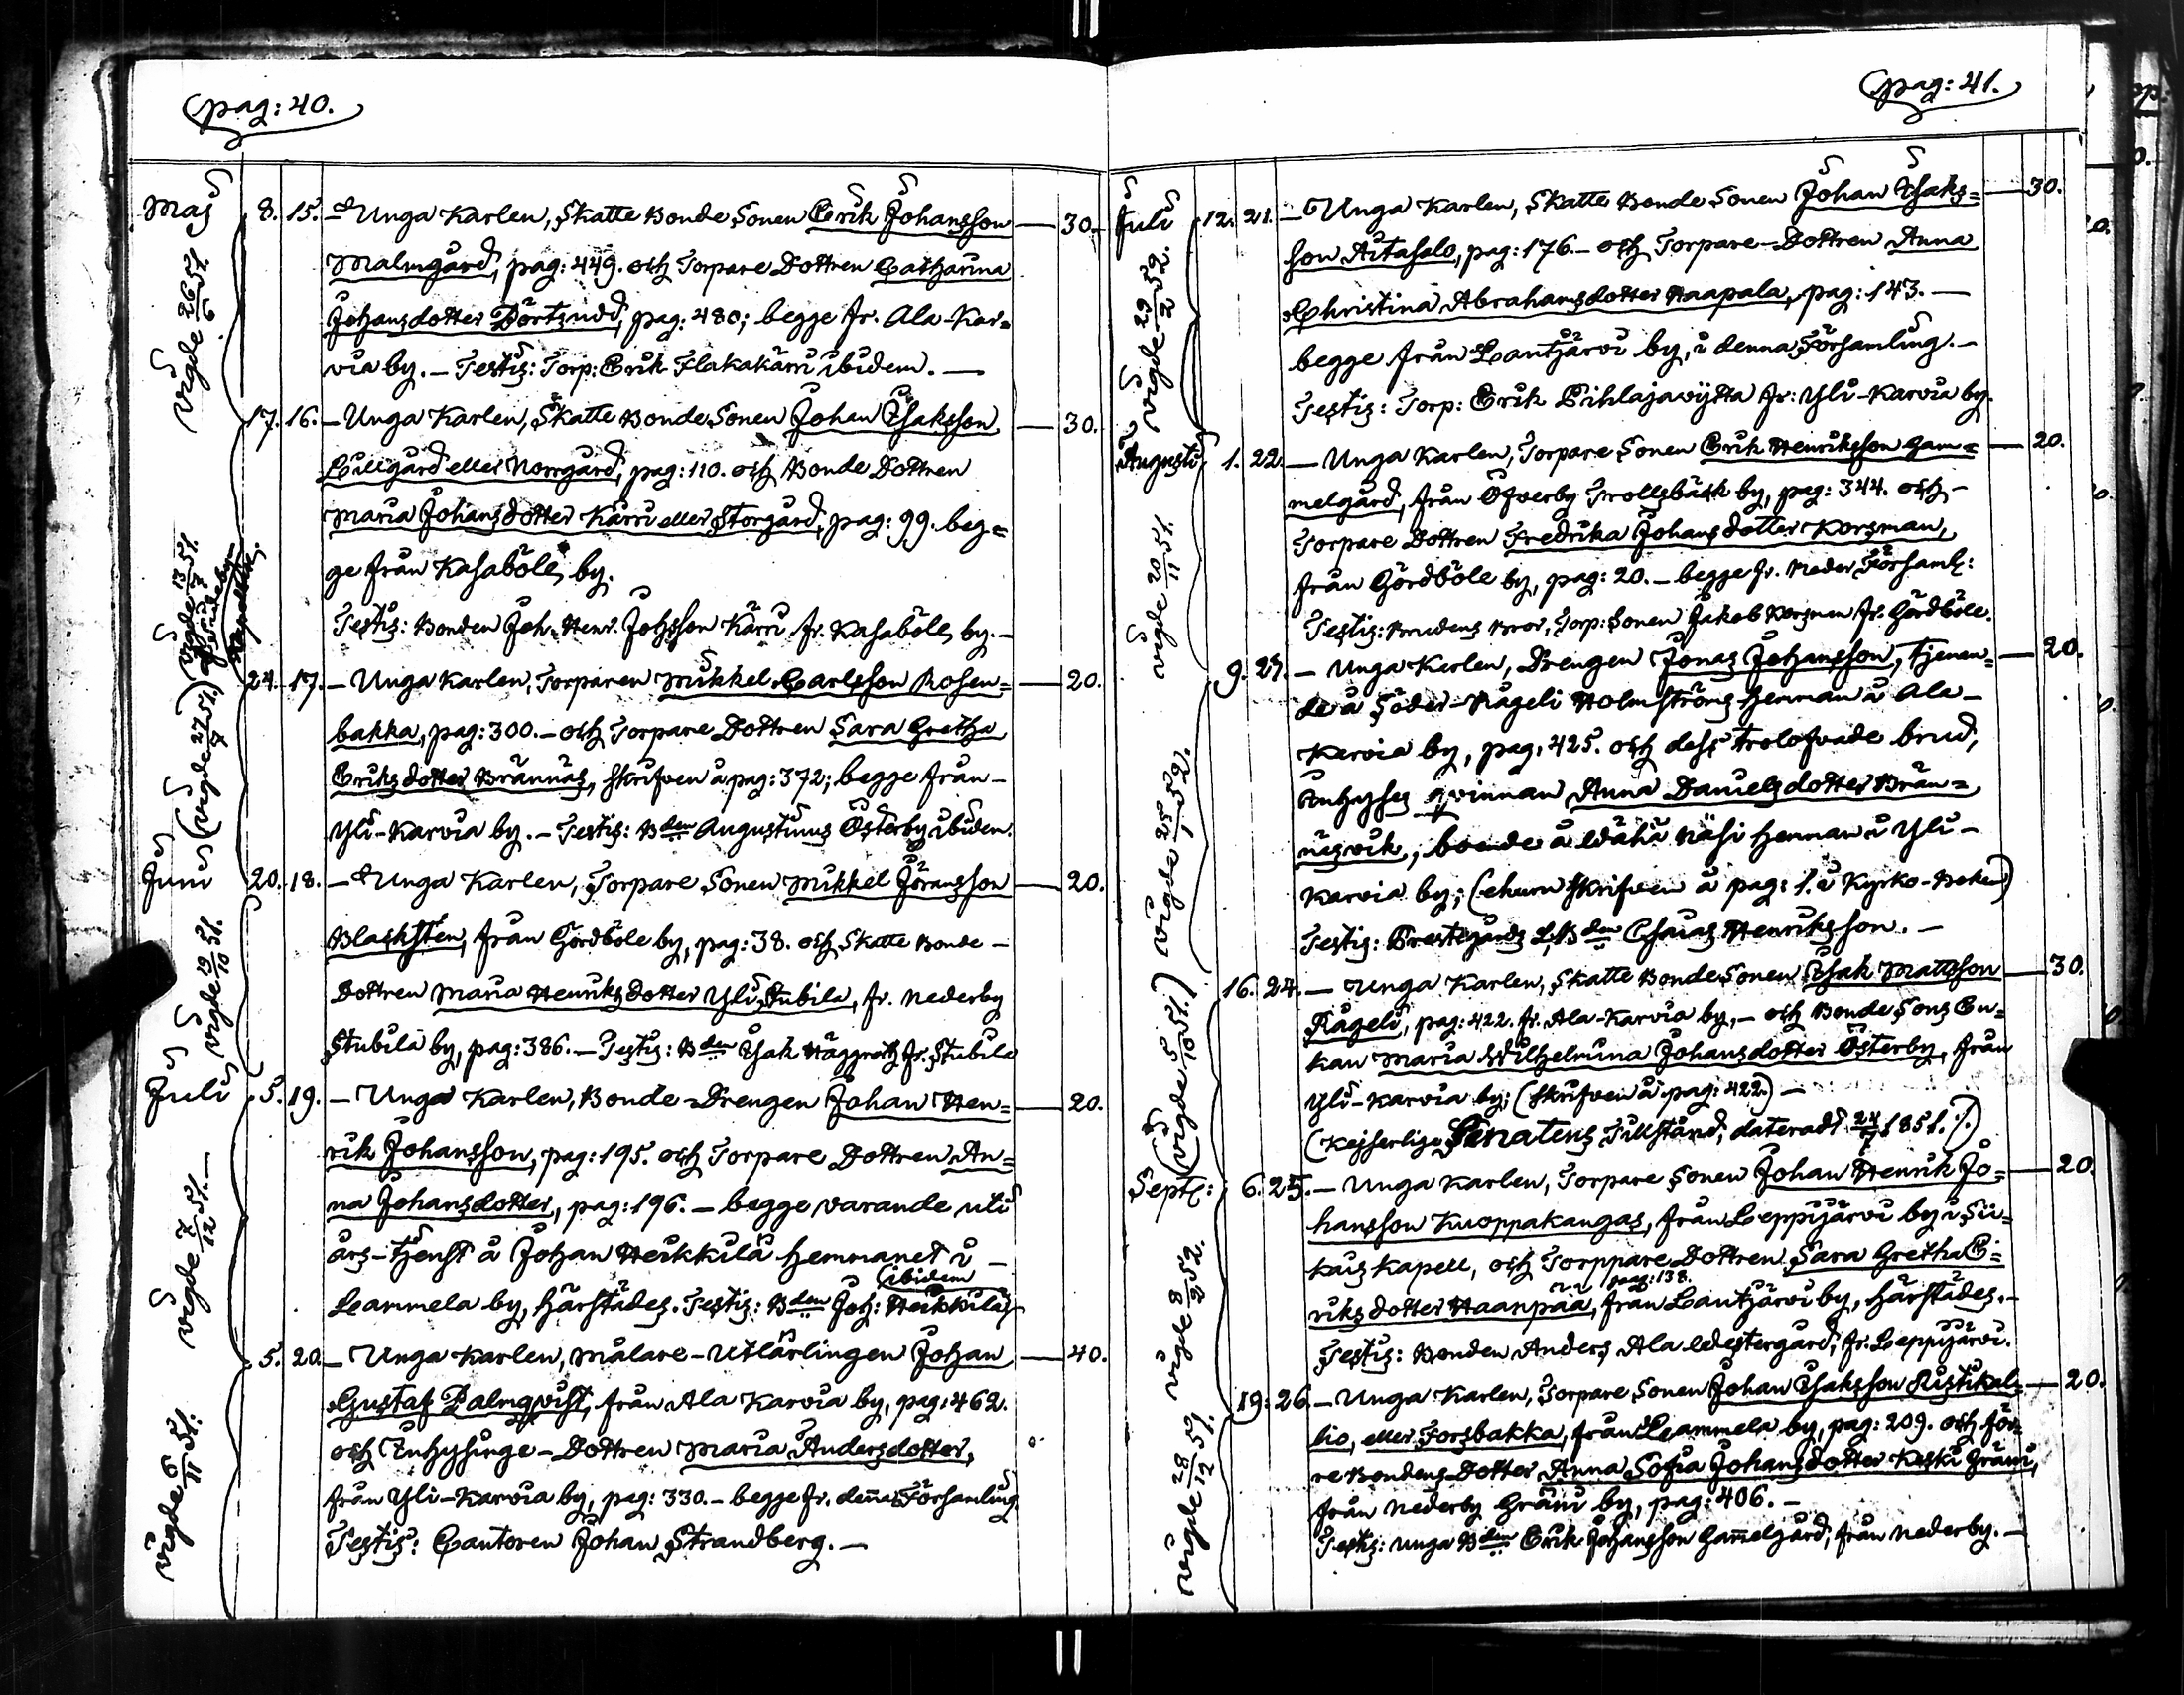 pag: 40.
Maj 8. 15. – Unga Karlen, Skatte Bonde Sonen Erik Johansson — 30.
Malmgård, pag: 449. och Torpare Dottren Catharina
Johansdotter Börtzudd, pag: 480; begge fr. Ala-Kar=
via by. – Testis: Torp: Erik Flakakärri ibidem. —
Vigde 26/6 51.
17. 16. – Unga Karlen, Skatte Bonde Sonen Johan Isaksson — 30.
Lillgård eller Norrgård, pag: 110. och Bonde Dottren
Maria Johansdotter Kärri eller Storgård, pag: 99. beg=
ge från Kasaböle by.
Testis: Bonden Joh. Henr. Johsson Kärri fr. Kasaböle by. –
Vigde 13/7 51.
24. 17. – Unga Karlen, Torparen Mikkel Carlsson Rosen= — 20.
bakka, pag: 300. – och Torpare Dottren Sara Gretha
Eriksdotter Brännäs, skrifven å pag: 372; begge från –
Yli-Karvia by. – Testis: Bden Augustinus Österby ibidem.
(vigde 27/7 51.)
Juni 20. 18. – Unga Karlen, Torpare Sonen Mikkel Göransson — 20.
Blacksten, från Gördböle by, pag: 38. och Skatte Bonde –
Dottren Maria Henriksdotter Yli Stubila, fr. Nederby
Stubila by, pag: 386. – Testis: Bden Isak Häggroth fr. Stubila
vigde 19/10 51.
Juli 5. 19. – Unga Karlen, Bonde-Drengen Johan Hen= — 20.
rik Johansson, pag: 195. och Torpare Dottren An=
na Johansdotter, pag: 196. – begge varande uti
års-tjenst å Johan Heikkilä hemmanet i –
ibidem
Lammela by, härstädes. Testis: Bden Joh: Heikkilä
vigde 7/12 51. –
5. 20. – Unga Karlen, Målare-Utlärlingen Johan — 40.
Gustaf Palmqvist, från Ala Karvia by, pag: 462.
och Inhysinge-Dottren Maria Andersdotter,
från Yli-Karvia by, pag: 330. – begge fr. denna Församling
Testis: Cantoren Johan Strandberg. –
vigde 6/11 51.
pag: 41.
Juli 12. 21. – Unga Karlen, Skatte Bonde Sonen Johan Isaks= — 30.
son Aitasalo, pag: 176. – och Torpare-Dottren Anna
Christina Abrahamsdotter Haapala, pag: 143. –
begge från Lantjärvi by, i denna Församling. –
Testis: Torp: Erik Pihlajaviitta fr: Yli-Karvia by.
Vigde 29/2 52.
Augusti 1. 22. – Unga Karlen, Torpare Sonen Erik Henriksson Gam= — 20.
melgård, från Öfverby Trollsbäck by, pag: 344. och –
Torpare Dottren Fredrika Johansdotter Korsman,
från Gördböle by, pag: 20. – begge fr. Moder Församl:
Testis: Brudens Bror, Torp: Sonen Jakob Korsman fr. Gördböle.
vigde 20/11 51.
9. 23. – Unga Karlen, Drengen Jonas Johansson, tjenan= — 20.
de å Söder-Rågeli Holmströms Hemman å Ala –
Karvia by, pag: 425. och dess trolofvade brud,
Inhyses qvinnan Anna Danielsdotter Brän=
näsvik, boende å Wähä Näsi Hemman å Yli –
Karvia by; (ehuru skrifven å pag: 1. i Kyrko-Boken)
Testis: Prestegårds LBden Esaias Henriksson. –
vigde 25/1 52.
16. 24. – Unga Karlen, Skatte Bonde Sonen Isak Mattsson — 30.
Rågeli, pag: 422. fr. Ala-Karvia by, – och Bonde Sons En=
kan Maria Wilhelmina Johansdotter Österby, från
Yli-Karvia by; (skrifven å pag: 422.) –
(Kejserliga Senatens Tillstånd, dateradt 24/7 1851.)
(vigde 5/10 51.)
Sept: 6. 25. – Unga Karlen, Torpare Sonen Johan Henrik Jo= — 20.
hansson Kuoppakangas, från Leppijärvi by i Sii=
kais Kapell, och Torppare Dottren Sara Gretha E=
pag: 138.
riksdotter Haanpää, från Lantjärvi by, härstädes. –
Testis: Bonden Anders Ala Westergård, fr. Leppijärvi.
vigde 8/2 52.
19. 26. – Unga Karlen, Torpare Sonen Johan Isaksson Ristikal= — 20.
lio, eller Forsbakka, från Lammela by, pag: 209. och för=
re Bondens Dotter Anna Sofia Johansdotter Keski Gräni,
från Nederby Gräni by, pag: 406. –
Testis: Unga Bden Erik Johansson Gammelgård, från Nederby. –
vigde 28/12 51.